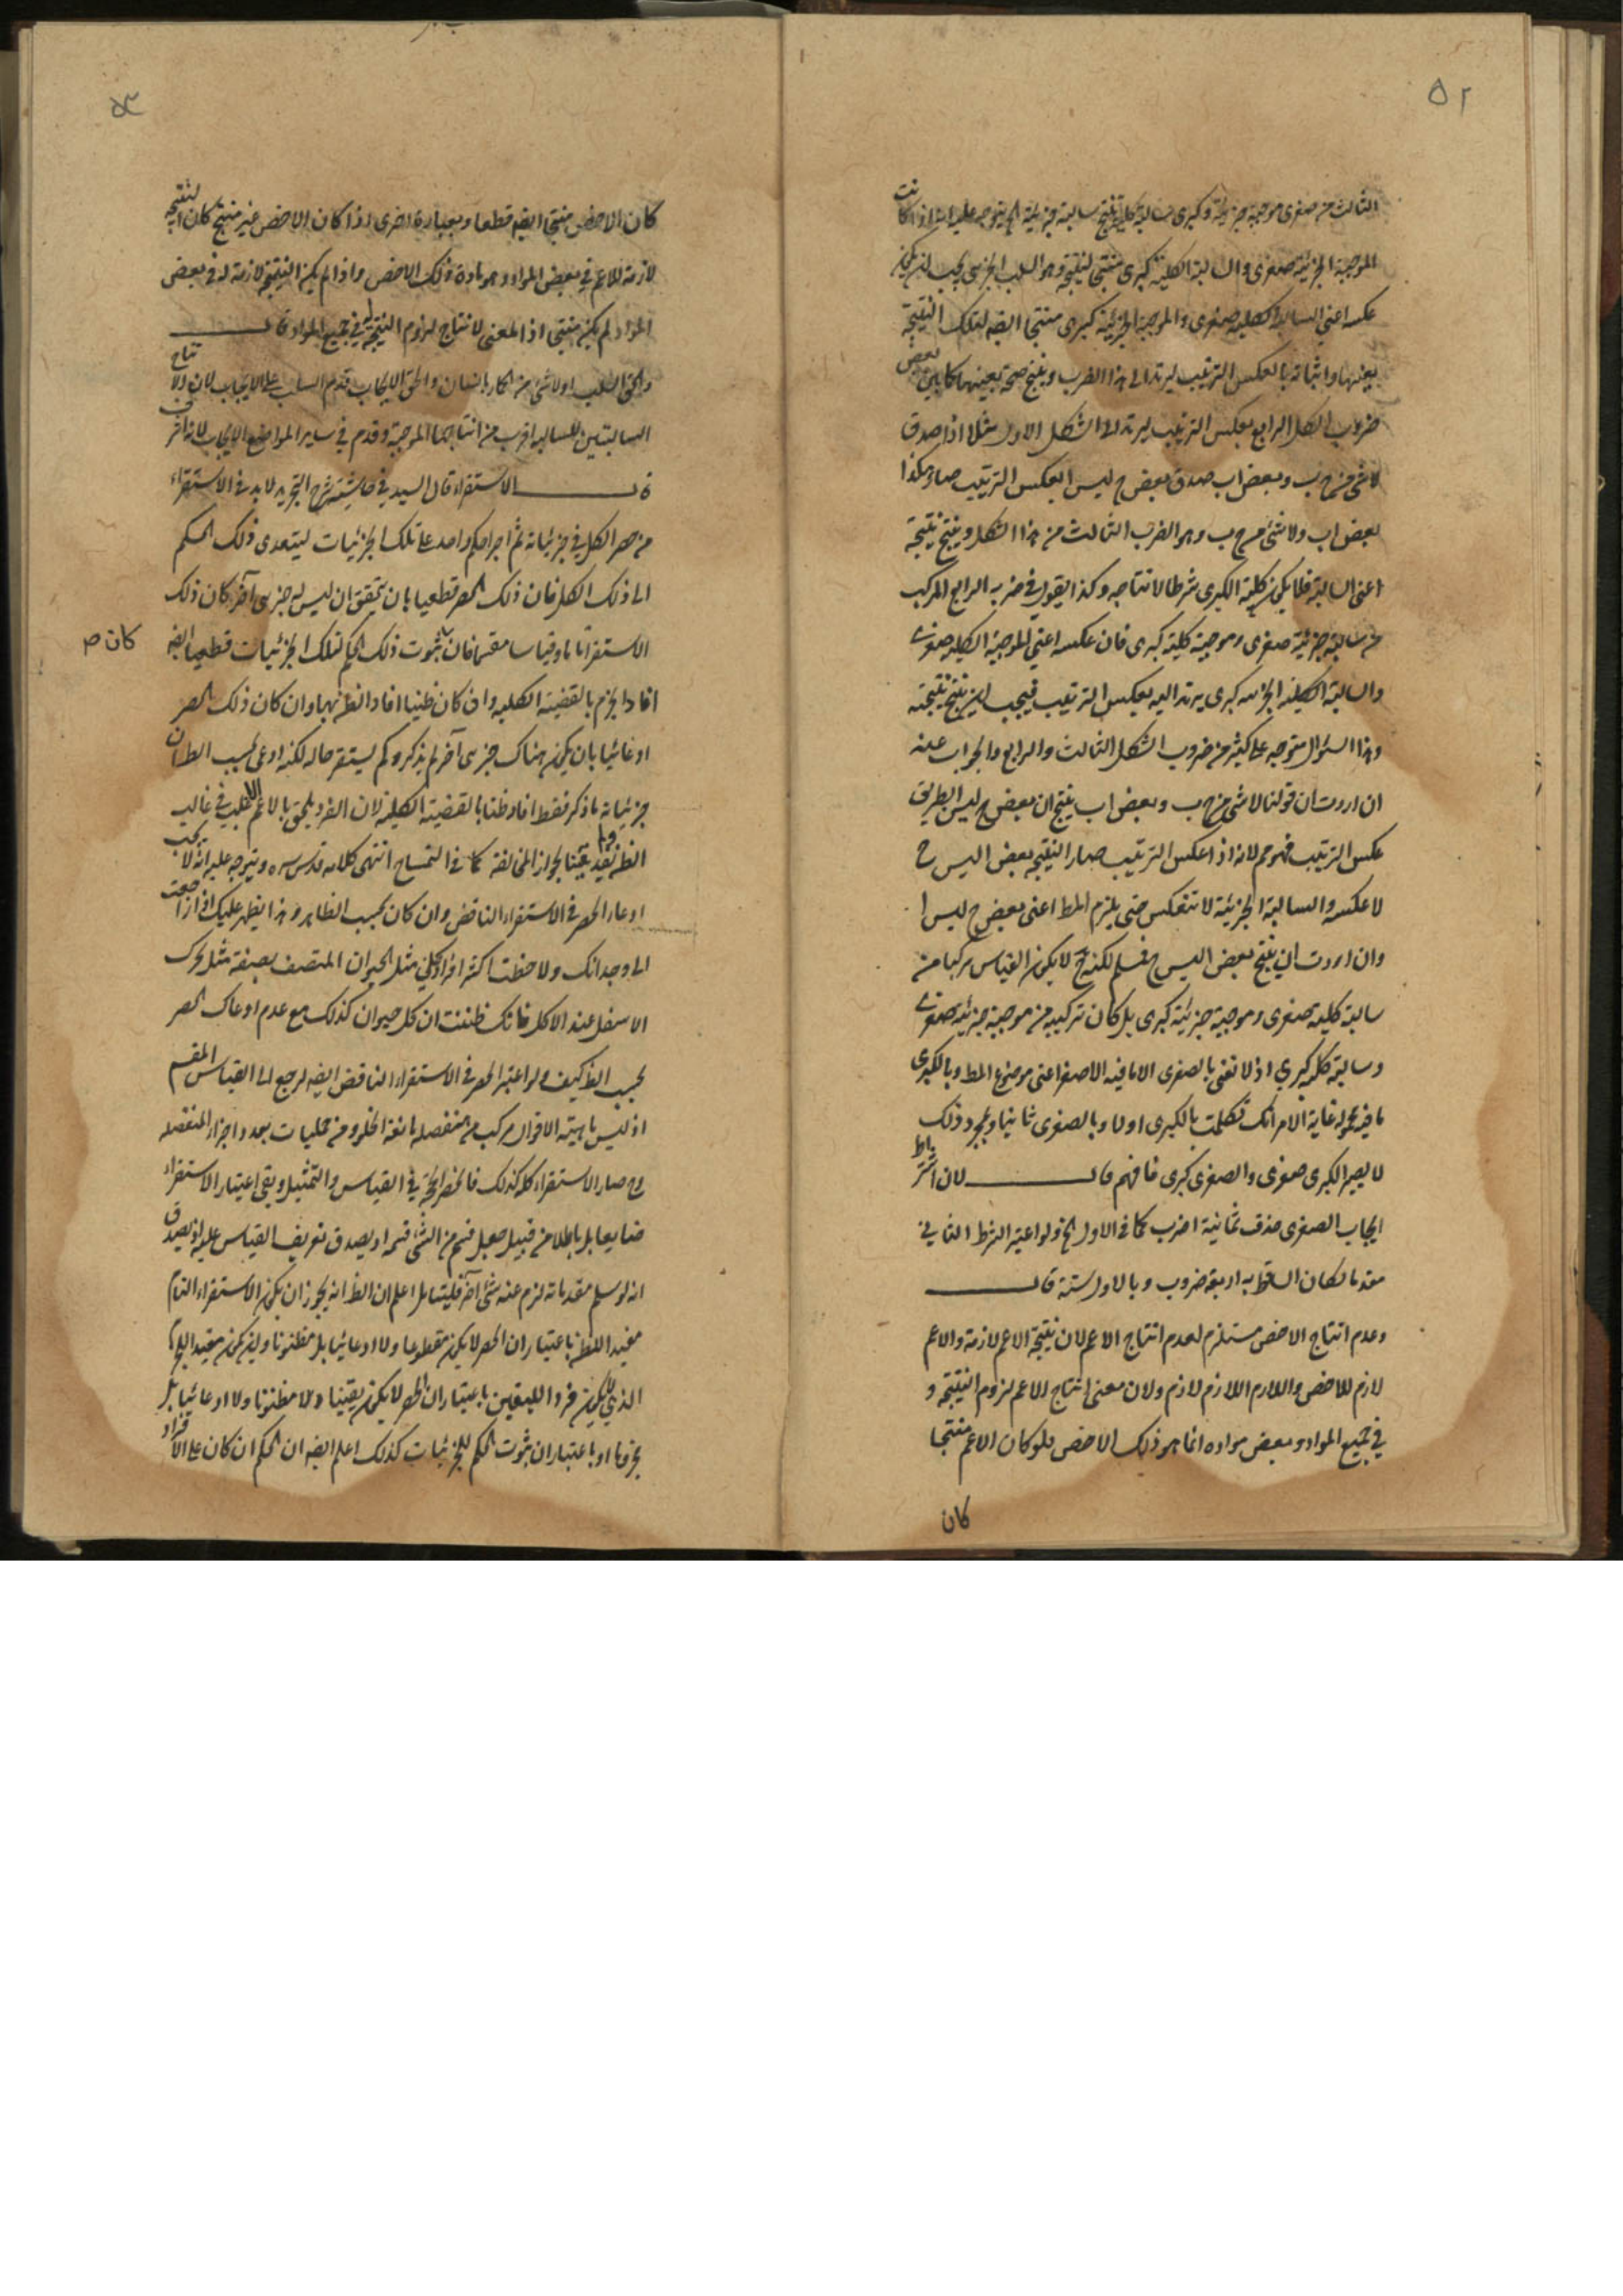 ٥٢
الثالث من صغرى موجبة جزئية وكبرى سالبة كلية ينتج سالبة جزئية الخ يتوجه عليه انه اذا كانت
الموجبة الجزئية صغرى والسالبة الكلية كبرى منتجا لنتيجة وهو السلب الجزئى يجب ان يكون
عكسه اعنى السالبة الكلية صغرى والموجبة الجزئية كبرى منتجا ايضه لتلك النتيجة
بعينها واثباته بالعكس الترتيب ليرتد الى هذا الضرب وينتج صحة بعينها كما بين بعض
ضروب الشكل الرابع بعكس الترتيب ليرتد الى الشكل الاول مثلا اذا صدق
لاشئ من ج ب وبعض اب صدق بعض ج ليس ا بعكس الترتيب صار هكذا
بعض اب ولا شئ من ج ب وهو الضرب الثالث من هذا الشكل وينتج نتيجة
اعنى السالبة فلا يكون كلية الكبرى شرطا لانتاجه وكذا يقول فى ضربه الرابع المركب
من سالبة جزئية صغرى وموجبة كلية كبرى فان عكسه اعنى الموجبة الكلية صغرى
والسالبة الجزئية كبرى يرتد اليه بعكس الترتيب فيجب ان ينتج نتيجته
وهذا السؤال متوجه على كثير من ضروب الشكل الثالث والرابع والجواب عنه
ان اردت ان قولنا لاشئ من ج ب وبعض اب ينتج ان بعض ج ليس ا بطريق
عكس الترتيب فهو مم لانه اذا عكس الترتيب صار النتيجة بعض ا ليس ج
لا عكسه والسالبة الجزئية لا تنعكس حتى يلزم المط اعنى بعض ج ليس ا
وان اردت ان ينتج بعض ا ليس ج فسلم لكنه ح لا يكون القياس مركبا من
سالبة كلية صغرى وموجبة جزئية كبرى بل كان تركيبه من موجبة جزئية صغرى
وسالبة كلية كبرى اذ لا نعنى بالصغرى الا ما فيه الاصغر اعنى موضوع المط وبالكبرى
ما فيه محموله غاية الامر انك تكلمت بالكبرى اولا وبالصغرى ثانيا وبمجرد ذلك
لا يصير الكبرى صغرى والصغرى كبرى فافهم قال لان اشتراط
ايجاب الصغرى حذف ثمانية اضرب كما فى الاول الخ ولو اعتبر الشرط الثانى
مقدما لكان الساقط به اربعة ضروب وبالاول ستة قال
وعدم انتاج الاخص مستلزم لعدم انتاج الاعم لان نتيجة الاعم لازمة والاعم
لازم للاخص واللازم اللازم لازم ولان معنى انتاج الاعم لزوم النتيجة و
فى جميع المواد وبعض مواده انما هو ذلك الاخص فلو كان الاعم منتجا
كان
٥٣
كان الاخص منتجا ايضه قطعا وبعبارة اخرى اذا كان الاخص غير منتج كان النتيجة
لازمة للاعم فى بعض المواد وهو مادة ذلك الاخص واذا لم يكن النتيجة لازمة له فى بعض
المواد لم يكن منتجا اذ المعنى لانتاج لزوم النتيجة له فى جميع المواد قال
والحق السلب اولا شئ من الحمار بانسان والحق الايجاب قدم السلب على الايجاب لان انتاج
السالبتين للسالبة اقرب من انتاجهما الموجبة وقدم فى ساير المواضع الايجاب لانه اشرف
قال الاستقراء قال السيد فى حاشية شرح التجريد لابد فى الاستقراء
من حصر الكلى فى جزئياته ثم اجراء حكم واحد على تلك الجزئيات ليتعدى ذلك الحكم
الى ذلك الكلى فان ذلك الحصر قطعيا بان يتحقق ان ليس له جزئى آخر كان ذلك
الاستقراء تاما وقياسا مقسما فان ثبوت ذلك الحكم لتلك الجزئيات قطعيا ايضه
كان ص
افاد الجزم بالقضية الكلية وان كان ظنيا افاد الظن بها وان كان ذلك الحصر
ادعائيا بان يكون هناك جزئى آخر لم يذكر ولم يستقر حاله لكنه ادعى بحسب الظ ان
جزئياته ما ذكر فقط افاد ظنا بالقضية الكلية لان الفرد يلحق بالاعم الاغلب فى غالب
الظن ولم يفد يقينا لجواز المخالفة كما فى التمساح انتهى كلامه قدس سره ويتوجه عليه انه لا يجب
ادعاء الحصر فى الاستقراء الناقص وان كان بحسب الظاهر وهذا يظهر عليك اذا راجعت
الى وجدانك ولاحظت اكثر افراد كلى مثل الحيوان المتصف بصفة مثل تحرك
الاسفل عند الاكل فانك ظننت ان كل حيوان كذلك مع عدم ادعاك الحصر
بحسب الظ كيف ولو اعتبر الحصر فى الاستقراء الناقص ايضه لرجع الى القياس المقسم
اذ ليس ماهيته الا قول مركب من منفصلة مانعة الخلو ومن حمليات بعدد اجزاء المنفصله
وح صار الاستقراء كله كذلك فانحصر الحجة فى القياس والتمثيل وبقى اعتبار الاستقراء
ضايعا بل باطلا من قبيل جعل قسم من الشئ قسمه او يصدق تعريف القياس عليه اذ يصدق
انه لو سلم مقدماته لزم عنه شئ آخر فليتامل اعلم ان الظ انه يجوز ان يكون الاستقراء التام
مفيد اللظن باعتبار ان الحصر لا يكون مقطوعا ولا ادعائيا بل مظنونا ولم يكن مفيد الجزم
الذى يكون فردا لليقين باعتبار ان الحصر لا يكون يقينا ولا مظنونا ولا ادعائيا بل
مجزوما او باعتبار ان ثبوت الحكم للجزئيات كذلك اعلم ايضه ان الحكم ان كان على الافراد